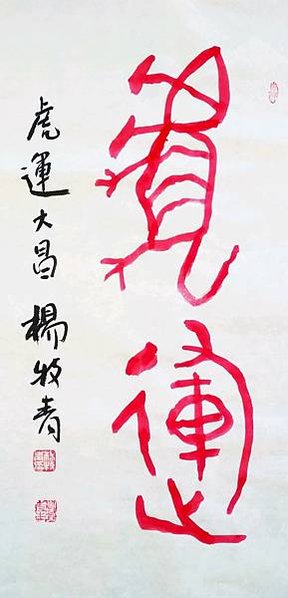 虎運
虎運大昌 楊牧青